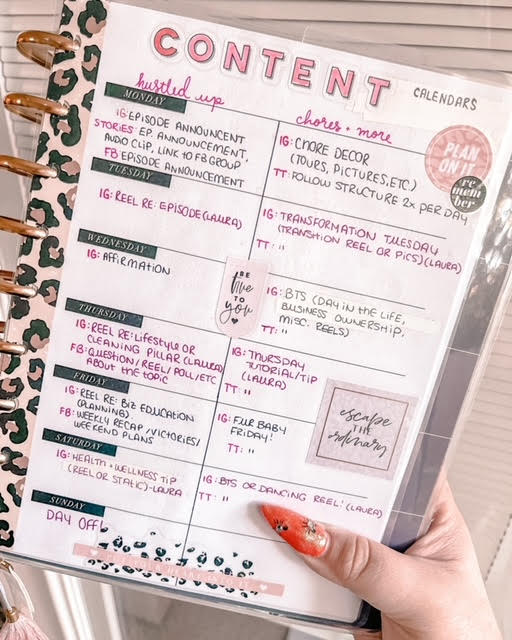 CONTENT
CALENDARS
hustled up
chores + more
PLAN ON IT
remember
MONDAY
IG: EPISODE ANNOUNCENT
STORIES: EP. ANNOUNCEMENT,
AUDIO CLIP, LINK TO FB GROUP
FB: EPISODE ANNOUNCEMENT
IG: CHORE DECOR
(TOURS, PICTURES, ETC.)
TT: FOLLOW STRUCTURE 2x PER DAY
TUESDAY
IG: REEL RE: EPISODE (LAURA)
IG: TRANSFORMATION TUESDAY
(TRANSITION REEL OR PICS) (LAURA)
TT: "
WEDNESDAY
IG: AFFIRMATION
BE
true
TO
YOU
IG: BTS (DAY IN THE LIFE,
BUSINESS OWNERSHIP,
MISC. REELS)
TT: "
THURSDAY
IG: REEL RE: LIFESTYLE OR
CLEANING PILLAR (LAURA)
FB: QUESTION/REEL/POLL/ETC
ABOUT THE TOPIC
IG: THURSDAY
TUTORIAL/TIP
(LAURA)
TT: "
FRIDAY
IG: REEL RE: BIZ EDUCATION
(PLANNING)
FB: WEEKLY RECAP/VICTORIES/
WEEKEND PLANS
IG: FUR BABY
FRIDAY!
TT: "
escape
THE
ordinary
SATURDAY
IG: HEALTH + WELLNESS TIP
(REEL OR STATIC) - LAURA
IG: BTS OR DANCING REEL! (LAURA)
TT: "
SUNDAY
DAY OFF